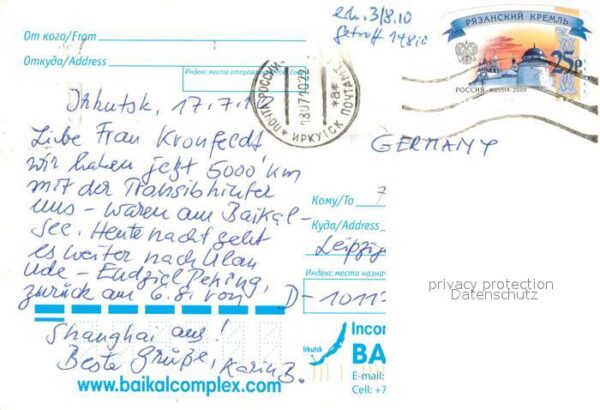 От кого/From
Откуда/Address
Индекс места отправления
ech. 3/8.10
getr. 14810
РЯЗАНСКИЙ КРЕМЛЬ
25р
РОССИЯ RUSSIA 2009
ПОЧТА РОССИИ
18071022
*а*
ИРКУТСК ПОЧТАМТ
Irkutsk, 17.7.10
Liebe Frau Kronfeldt
wir haben jetzt 5000 km
mit der Transib hinter
uns - waren am Baikal-
see. Heute nacht geht
es weiter nach Ulan
Ude - Endziel Peking,
zurück am 6.8. von
Shanghai aus!
Beste Grüße, Karin B.
GERMANY
Кому/To
Куда/Address
Leipzig
Индекс места назнач
D-1011
privacy protection
Datenschutz
Irkutsk
Incon
BA
E-mail:
Cell: +7
www.baikalcomplex.com